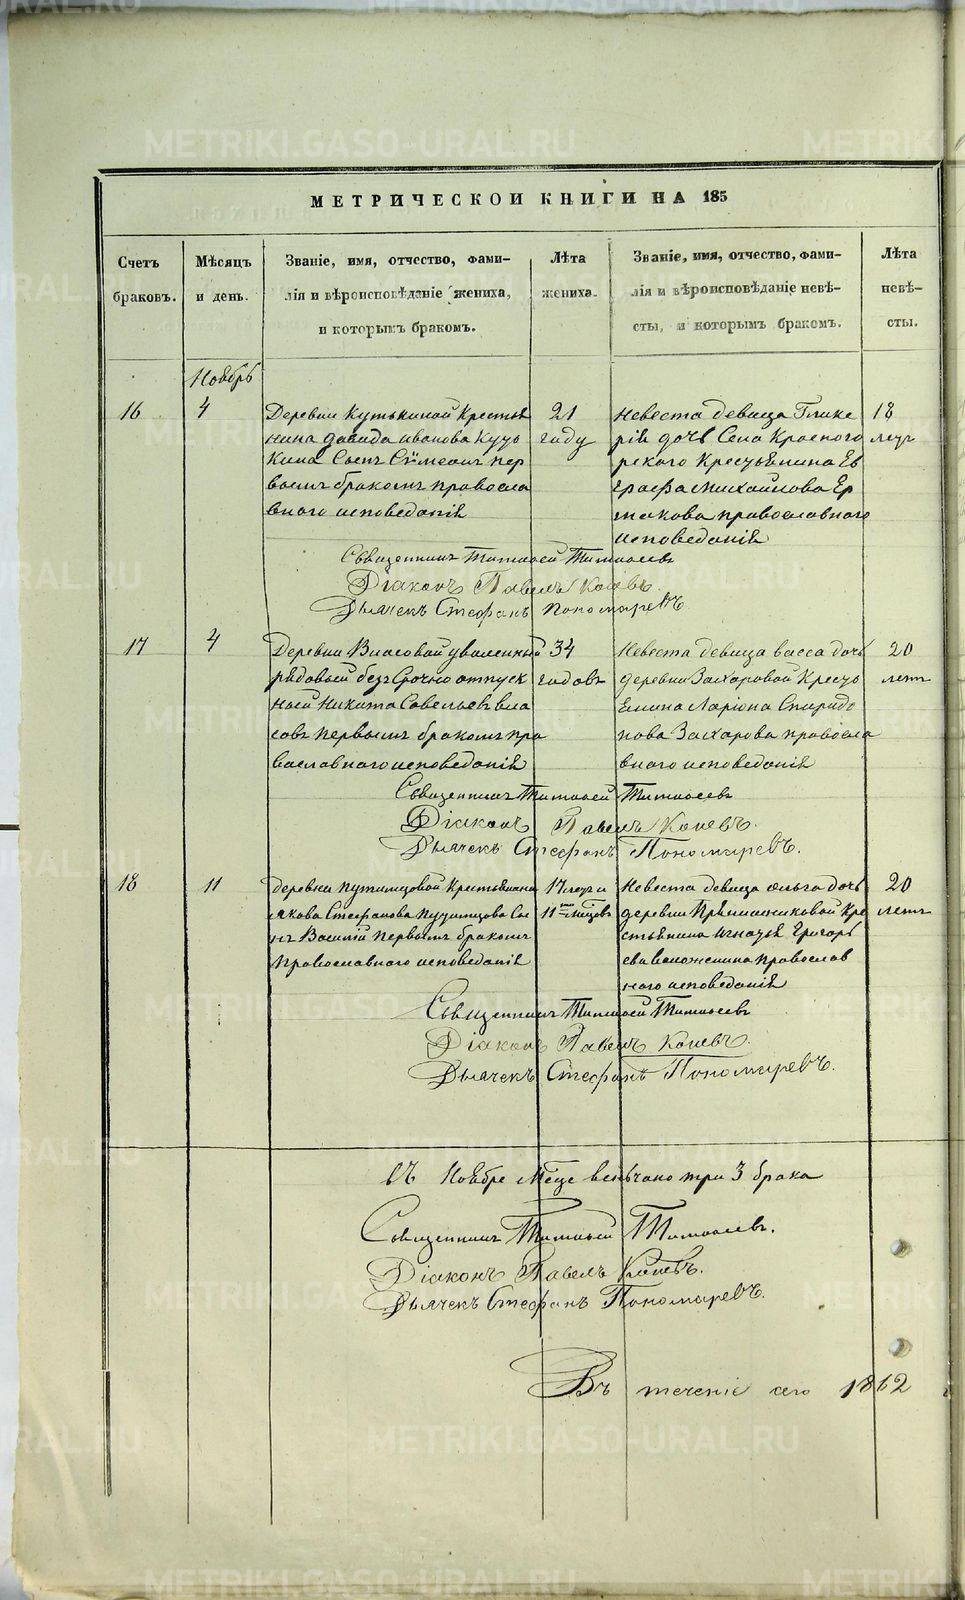 МЕТРИЧЕСКОЙ КНИГИ НА 185
Счетъ браковъ.
Мѣсяцъ и день.
Званіе, имя, отчество, фами-
лія и вѣроисповѣданіе жениха,
и которымъ бракомъ.
Лѣта жениха.
Званіе, имя, отчество, фами-
лія и вѣроисповѣданіе невѣ-
сты, и которымъ бракомъ.
Лѣта невѣ-
сты.
Ноябрь
16
4
Деревни Кутькиной Крестья
нина давида иванова Куть
кина Сынъ Сѵмеонъ пер
вымъ бракомъ правосла
внаго исповеданія
21
году
Невеста девица Глике
рія дочь Села Красного
рского Крестьянина Ев
графа Михайлова Ер
макова православнаго
исповеданія
18
летъ
Священникъ Тимофей Тимофеевъ
Діаконъ Павелъ Коневъ.
Дьячекъ Стефанъ Пономаревъ.
17
4
Деревни Власовой уволенный
рядовый безсрочно отпуск
ный Никита Савельевъ вла
совъ первымъ бракомъ пра
вославнаго исповеданія
34
годовъ
Невеста девица васса дочь
деревни Захаровой Кресть
янина Ларіона Спиридо
нова Захарова правосла
внаго исповеданія
20
летъ
Священникъ Тимофей Тимофеевъ
Діаконъ Павелъ Коневъ.
Дьячекъ Стефанъ Пономаревъ.
18
11
деревни путимцовой Крестьянина
иякова Стефанова Путимцова Сы
нъ Василій первымъ бракомъ
православнаго исповеданія
17 летъ и
11 месяцовъ
Невеста девица ольга дочь
деревни Прянишниковой Кре
стьянина Игнатья Григорь
ева православ
наго исповеданія
20
летъ
Священникъ Тимофей Тимофеевъ
Діаконъ Павелъ Коневъ.
Дьячекъ Стефанъ Пономаревъ.
въ Ноябре м-це венчано три 3 брака
Священникъ Тимофей Тимофеевъ.
Діаконъ Павелъ Коневъ.
Дьячекъ Стефанъ Пономаревъ.
Въ теченіе сего 1862
METRIKI.GASO-URAL.RU